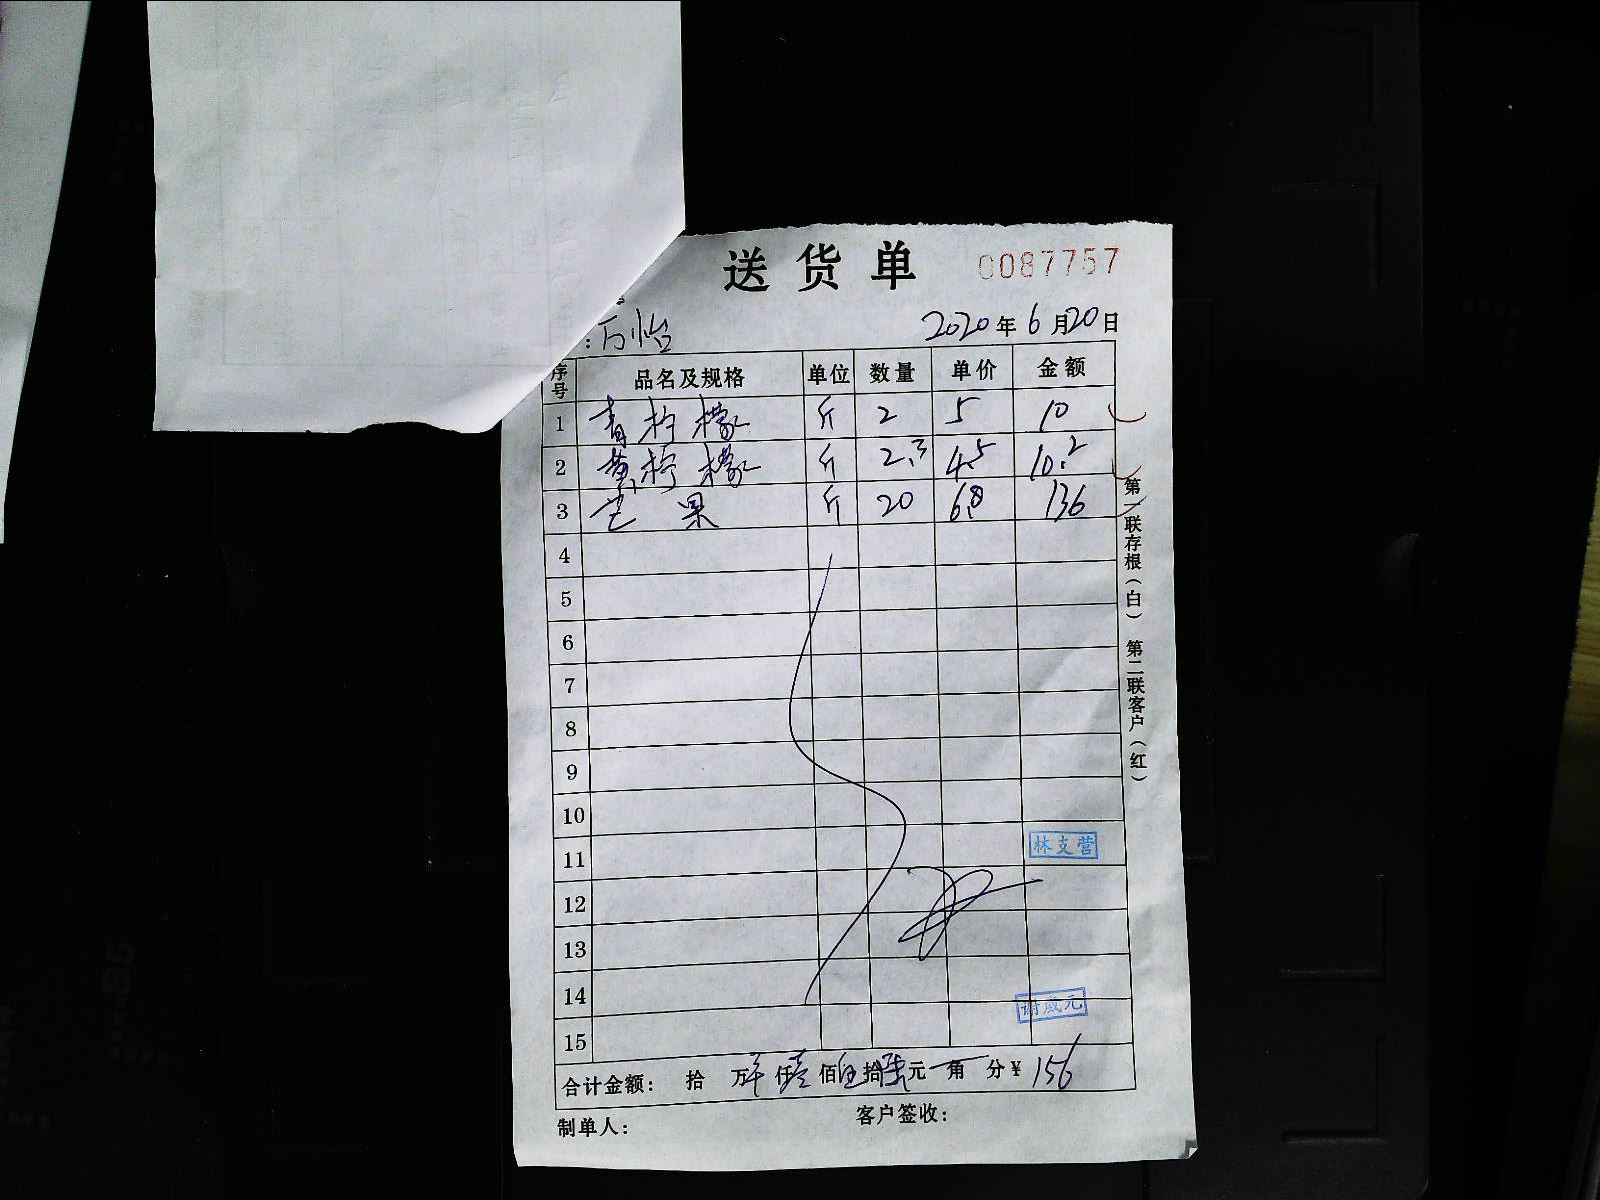 送货单 0087757
:万怡 2020年6月20日
序号 品名及规格 单位 数量 单价 金额
1 青柠檬 斤 2 5 10
2 黄柠檬 斤 2.3 4.5 10.2
3 芒果 斤 20 6.8 136
4
5
6
7
8
9
10
11 林支营
12
13
14 谢威元
15
合计金额: 拾 万 仟壹佰伍拾陆元 角 分¥156
制单人: 客户签收:
第一联存根(白) 第二联客户(红)